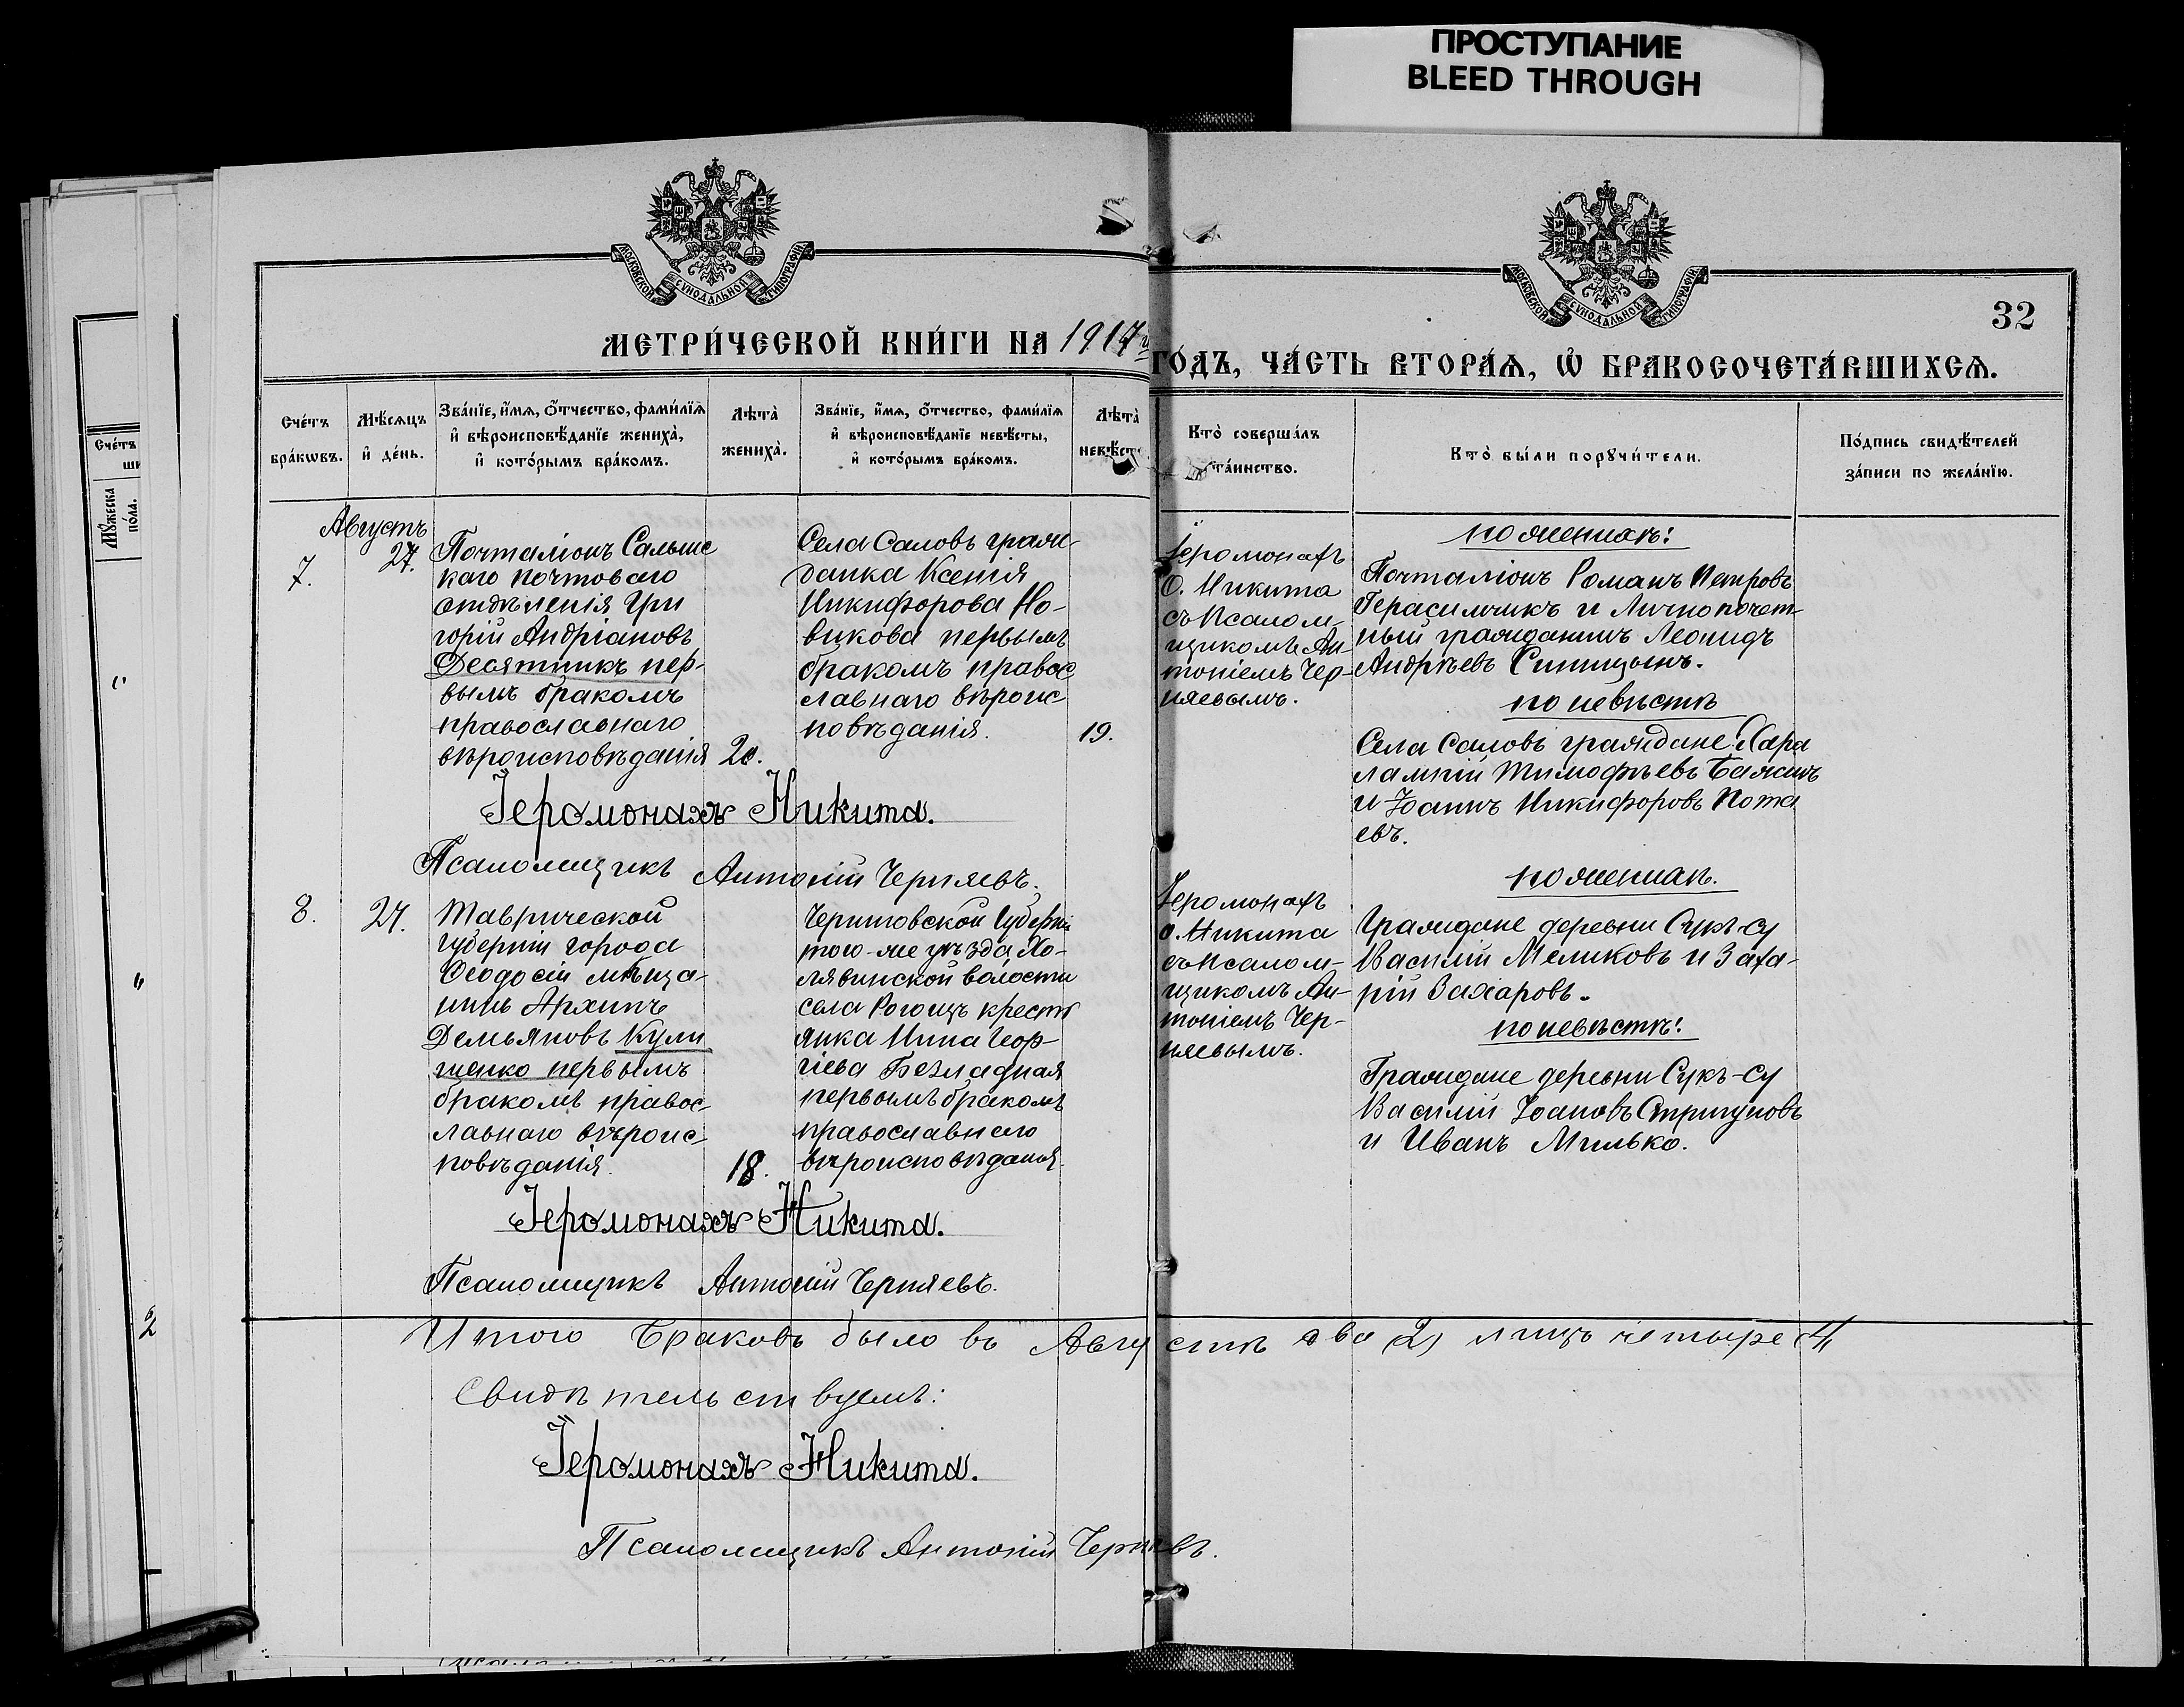 ПРОСТУПАНИЕ
BLEED THROUGH
МОСКОВСКОЙ СѴНОДАЛЬНОЙ ТИПОГРАФІИ
МОСКОВСКОЙ СѴНОДАЛЬНОЙ ТИПОГРАФІИ
32
МЕТРИ́ЧЕСКОЙ КНИ́ГИ НА 1917
ГО́ДЪ, ЧА́СТЬ ВТОРА́Ѧ, Ѽ БРАКОСОЧЕТА́ВШИХСѦ.
Сче́тъ
бра́кѡвъ.
Мѣ́сѧцъ
и҆ де́нь.
Зва́нїе, и҆́мѧ, ѻ҆́тчество, фами́лїѧ
и҆ вѣроисповѣ́данїе жениха̀,
и҆ кото́рымъ бра́комъ.
Лѣта̀
жениха̀.
Зва́нїе, и҆́мѧ, ѻ҆́тчество, фами́лїѧ
и҆ вѣроисповѣ́данїе невѣ́сты,
и҆ кото́рымъ бра́комъ.
Лѣта̀
невѣ́ст
Кто̀ соверша́лъ
та́инство.
Кто̀ бы́ли порꙋчи́тели.
По́дпись свидѣ́телей
за́писи по жела́нїю.
Сче́тъ
Мꙋ́жеска
по́ла.
2
Августъ
7.
27.
Почталіонъ Салынс
каго почтоваго
отдѣленія Гри
горій Андріановъ
Десятникъ пер-
вымъ бракомъ
православнаго
вѣроисповѣданія
20.
Села Саловъ граж-
данка Ксенія
Никифорова Но-
викова первымъ
бракомъ правос
лавнаго вѣроис-
повѣданія.
19.
Іеромонахъ
О. Никита
съ Псалом-
щикомъ Ан-
тоніемъ Чер-
няевымъ.
по женихѣ:
Почталіонъ Романъ Петровъ
Герасимчикъ и Лично почет-
ный гражданинъ Леонидъ
Андреевъ Синицынъ.
по невѣстѣ
Села Саловъ граждане: Хара
лампій Тимофѣевъ
и Іоаннъ Никифоровъ Пота
евъ.
Іеромонахъ Никита.
Псаломщикъ Антоній Черняевъ.
8.
27.
Таврической
губерніи города
Ѳеодосіи мѣща-
нинъ Архипъ
Демьяновъ Кули
шенко первымъ
бракомъ правос-
лавнаго вѣроис-
повѣданія.
18.
Черниговской Губерні
того-же уѣзда, Хо-
лявинской волости
села Рогощъ кресть
янка Нина Геор-
гіева Безладная
первымъ бракомъ
православнаго
вѣроисповѣданія.
Іеромонахъ
о. Никита
съ Псалом-
щикомъ Ан-
тоніемъ Чер-
няевымъ.
по женихѣ.
Граждане деревни Сукъ-су
Василій Меликовъ и Заха-
рій Захаровъ.
по невѣстѣ:
Граждане деревни Сукъ-су
Василій Іоановъ Стригуновъ
и Иванъ Милько.
Іеромонахъ Никита.
Псаломщикъ Антоній Черняевъ.
Итого Браковъ было въ Августѣ два (2) лицъ четыре (4
Свидѣтельствуемъ:
Іеромонахъ Никита.
Псаломщикъ Антоній Черняевъ.